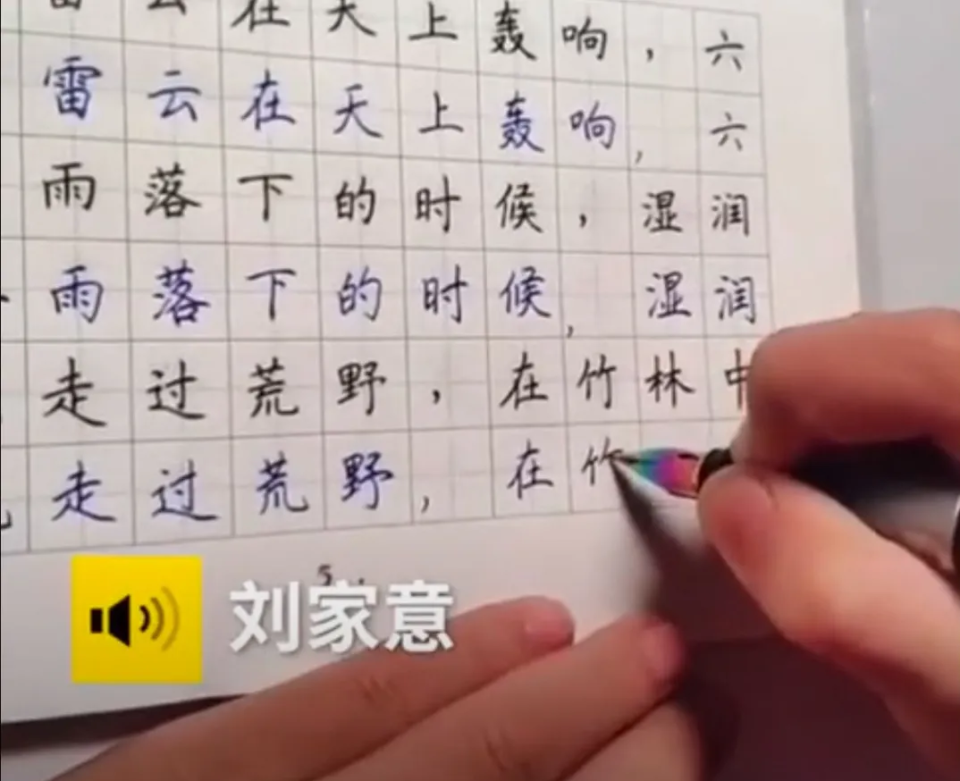 雷云在天上轰响，六
雷云在天上轰响，六
雨落下的时候，湿润
雨落下的时候，湿润
走过荒野，在竹林中
走过荒野，在竹
5
刘家意